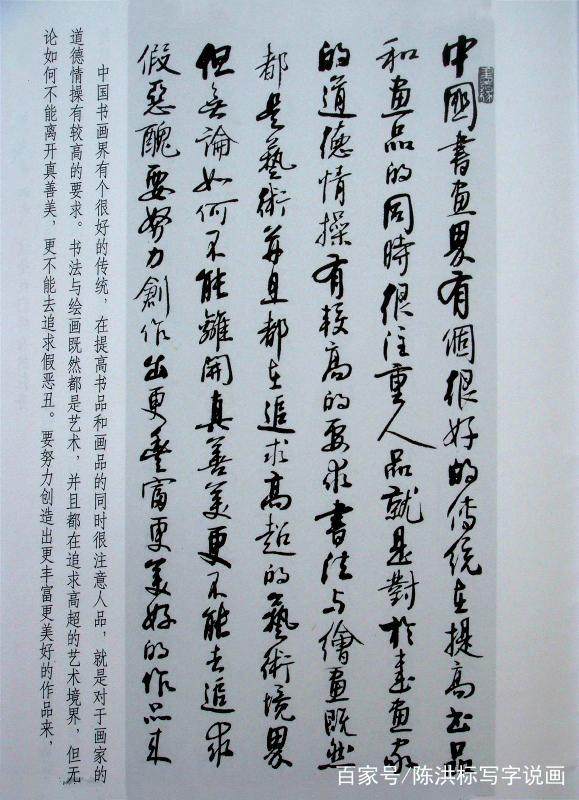 中國書畫界有個很好的傳統在提高書品
和畫品的同時很注重人品就是對於書畫家
的道德情操有較高的要求書法与繪畫既然
都是藝術并且都在追求高超的藝術境界
但無論如何不能離開真善美更不能去追求
假惡醜要努力創作出更豐富更美好的作品來
中国书画界有个很好的传统，在提高书品和画品的同时很注意人品，就是对于画家的
道德情操有较高的要求。书法与绘画既然都是艺术，并且都在追求高超的艺术境界，但无
论如何不能离开真善美，更不能去追求假恶丑。要努力创造出更丰富更美好的作品来，
百家号/陈洪标写字说画